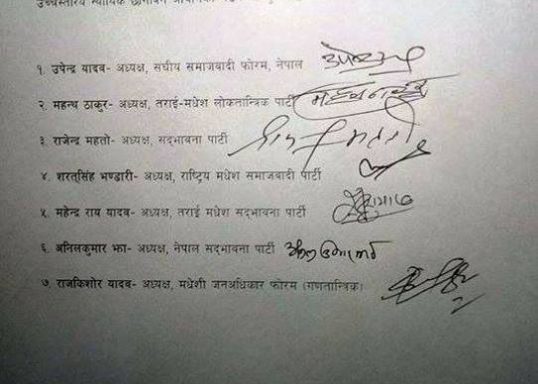 उच्चस्तरीय न्यायिक छानविन आयोगको
१. उपेन्द्र यादव- अध्यक्ष, संघीय समाजवादी फोरम, नेपाल
२. महन्थ ठाकुर- अध्यक्ष, तराई-मधेश लोकतान्त्रिक पार्टी
३ राजेन्द्र महतो- अध्यक्ष, सद्भावना पार्टी
४. शरतसिंह भण्डारी- अध्यक्ष, राष्ट्रिय मधेश समाजवादी पार्टी
५. महेन्द्र राय यादव- अध्यक्ष, तराई मधेश सद्भावना पार्टी
६. अनिलकुमार झा- अध्यक्ष, नेपाल सद्भावना पार्टी
७. राजकिशोर यादव- अध्यक्ष, मधेशी जनअधिकार फोरम (गणतान्त्रिक)